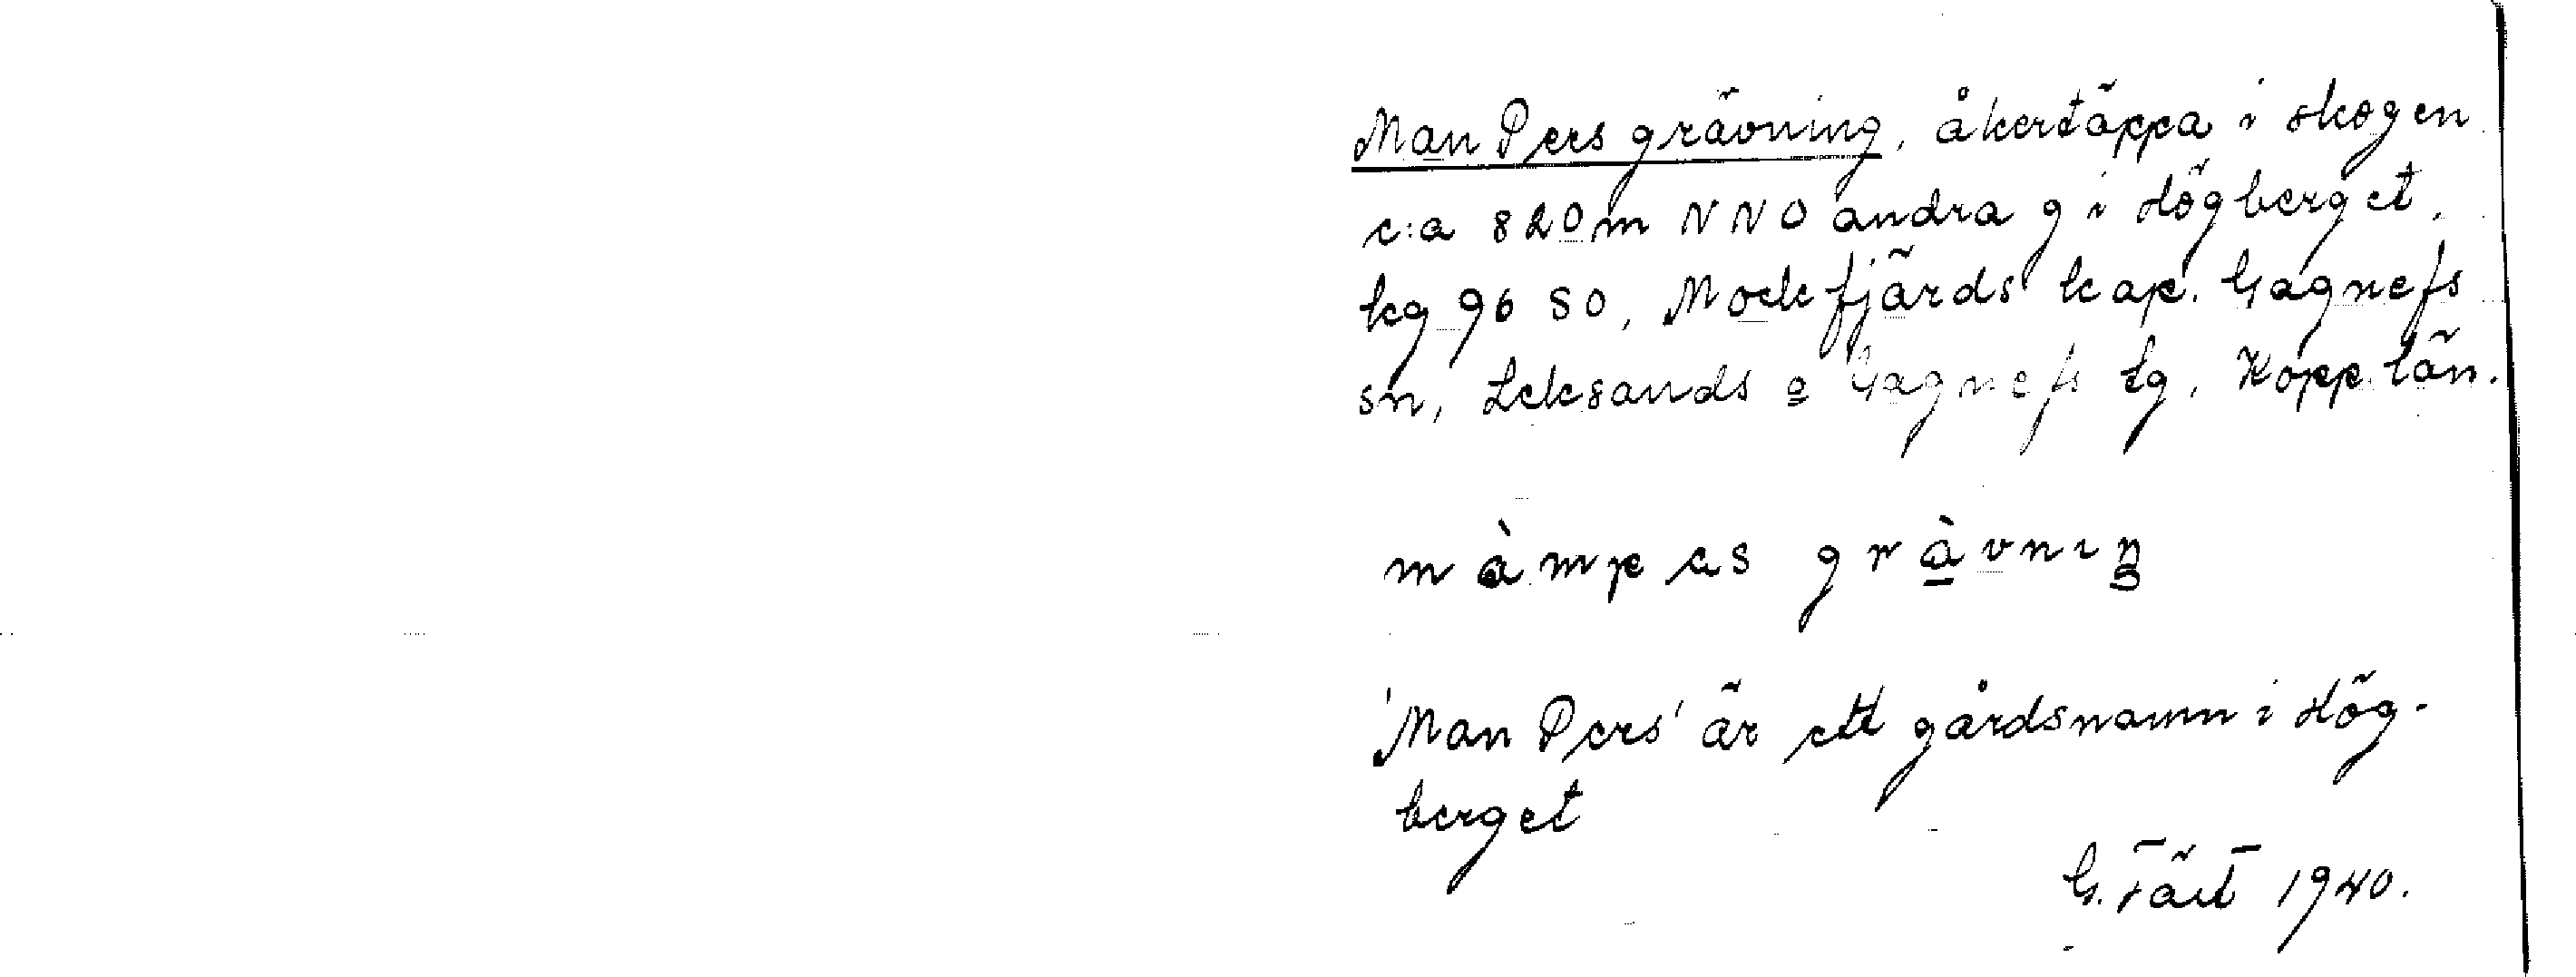 Man Pers grävning, åkertäppa i skogen
c:a 820 m NNO andra g i Högberget,
kg 96 SO, Mockfjärds kap. Gagnefs
sn, Leksands o Gagnefs tg, Kopp. län.
màmpas gràvnıŋ
'Man Pers' är ett gårdsnamn i Hög-
berget
G. 1940.